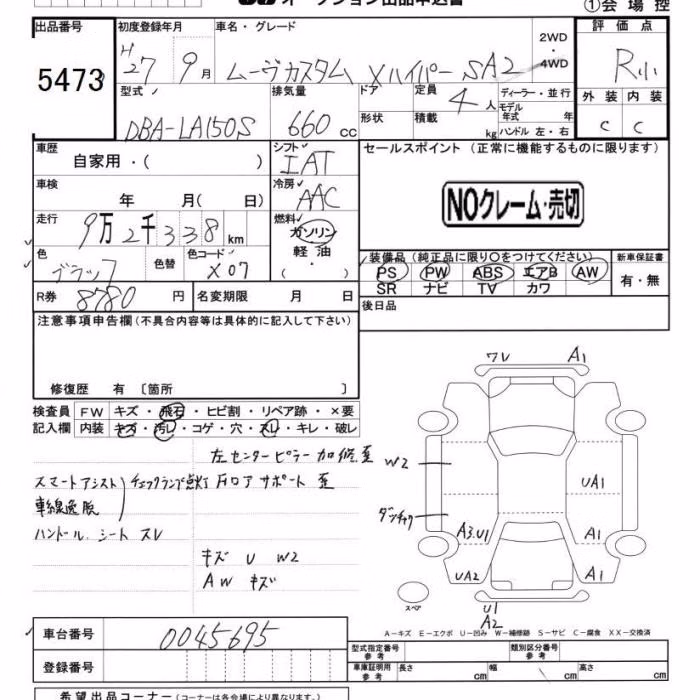 オークション出品申込書
①会場控
出品番号 初度登録年月 車名・グレード 評価点
5473 H27 9月 ムーヴカスタム XハイパーSA2 2WD・4WD R小
型式 排気量 ドア 定員 ディーラー・並行 外装 内装
DBA-LA150S 660cc 4人 モデル年式 年
形状 積載 kg ハンドル 左・右 C C
車歴 シフト セールスポイント(正常に機能するものに限ります)
自家用・( ) IAT
車検 冷房 NOクレーム・売切
年 月( 日) AAC
走行 燃料
9万2千338km ガソリン・軽油
色 色替 色コード 装備品(純正品に限り○をつけてください) 新車保証書
ブラック X07 PS PW ABS エアB AW 有・無
SR ナビ TV カワ
R券 8780円 名変期限 月 日 後日品
注意事項申告欄(不具合内容等は具体的に記入して下さい)
修復歴 有〔箇所 〕
検査員 FW キズ・飛石・ヒビ割・リペア跡・×要
記入欄 内装 キズ・汚レ・コゲ・穴・スレ・キレ・破レ
左センターピラー加修歪
スマートアシスト チェックランプ点灯 Fフロアサポート歪
車線逸脱
ハンドル.シートスレ
キズ U W2
AW キズ
ワレ A1
W2
UA1
A3.U1 A1
UA2 A1
スペア
U1
A2
A−キズ E−エクボ U−凹み W−補修跡 S−サビ C−腐食 XX−交換済
車台番号 0045695
型式指定番号 参考 類別区分番号 参考
登録番号
車庫証明用 参考 長さ cm 幅 cm 高さ cm
希望出品コーナー(コーナーは各会場により異なります。)